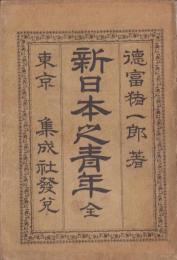 德富猪一郎 著
新日本之青年 全
東京 集成社發兌